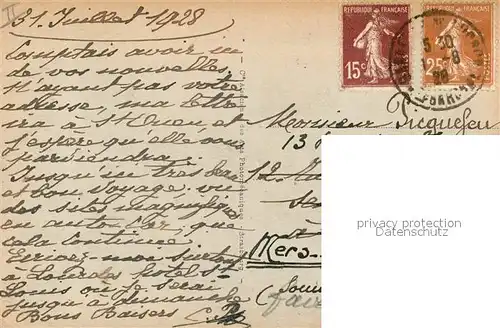 31 Juillet 1928
Comptais avoir un
de vos nouvelles
N'ayant pas votre
adresse, ma lettre
ira à St Ouen et
j'espère qu'elle vous
parviendra.
Jusqu'ici très
et bon voyage. vu
des sites magnifiques
en auto-car, que
cela continue
Ecrivez-moi surtout
à Lourdes hotel St
Louis où je serai
jusqu'à dimanche
Bons Baisers
REPUBLIQUE FRANÇAISE
15c
POSTES
REPUBLIQUE FRANÇAISE
25c
POSTES
Monsieur Picquefeu
13
12
Mers
faire
privacy protection
Datenschutz